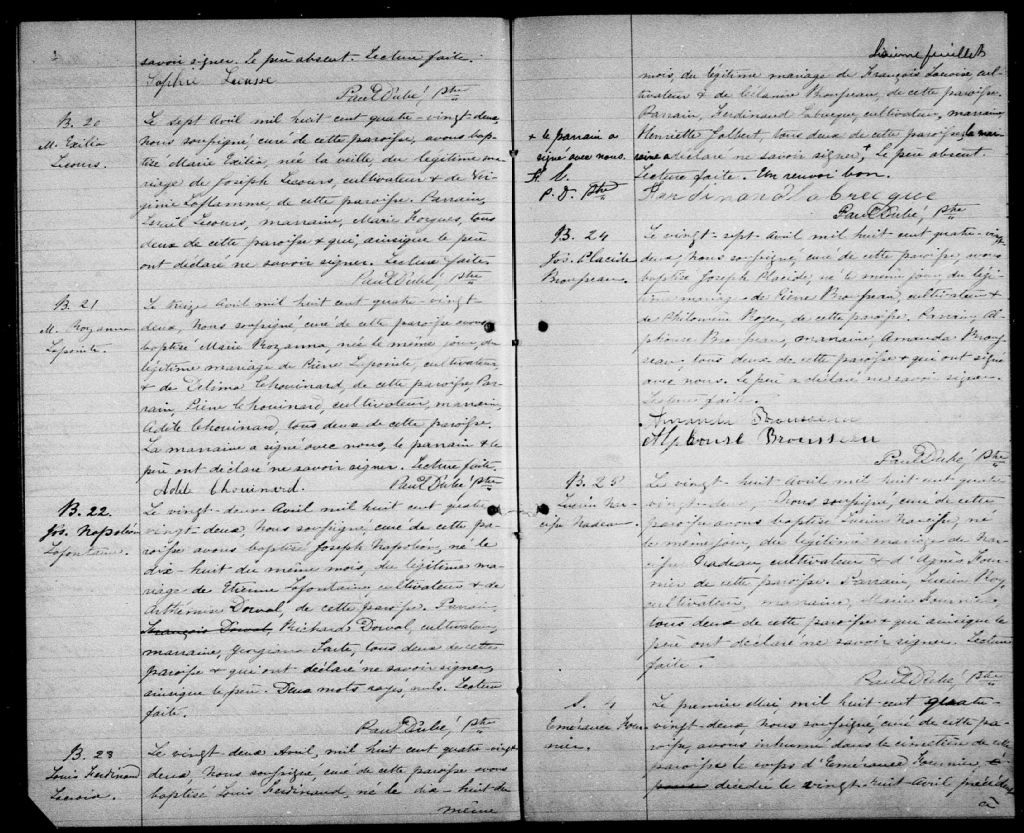 savoir signer. Le père absent. Lecture faite.
Sophie Lecusse
Paul Dubé, Ptre
B. 20
M. Exilia
Lecours.
Le sept Avril mil huit cent quatre-vingt-deux,
Nous soussigné, curé de cette paroisse, avons bap-
tisé Marie Exilia, née la veille, du légitime ma-
riage de Joseph Lecours, cultivateur & de Vir-
ginie Laflamme, de cette paroisse. Parrain,
Lecours, marraine, Marie tous
deux de cette paroisse & qui, ainsi que le père
ont déclaré ne savoir signer. Lecture faite.
Paul Dubé, Ptre
B. 21
M. Rozanna
Lapointe.
Le treize Avril mil huit cent quatre-vingt-
deux, Nous soussigné curé de cette paroisse avons
baptisé Marie Rozanna, née le même jour, du
légitime mariage de Pierre Lapointe, cultivateur
& de Delima Chouinard, de cette paroisse. Par-
rain, Pierre Chouinard, cultivateur, marraine,
Adèle Chouinard, tous deux de cette paroisse.
La marraine a signé avec nous, le parrain & le
père ont déclaré ne savoir signer. Lecture faite.
Adel Chouinard. Paul Dubé, Ptre
B. 22.
Jos. Napoléon
Lafontaine.
Le vingt-deux Avril mil huit cent quatre-
vingt-deux, Nous soussigné, curé de cette pa-
roisse avons baptisé Joseph Napoléon, né le
dix-huit du même mois, du légitime ma-
riage de Etienne Lafontaine, cultivateur & de
Arthémise Dorval, de cette paroisse. Parrain,
François Dorval, Richard Dorval, cultivateur,
marraine, Georgiana tous deux de cette
paroisse & qui ont déclaré ne savoir signer,
ainsi que le père. Deux mots rayés, nuls. Lecture
faite.
Paul Dubé, Ptre
B. 23
Louis Ferdinand
Lacroix.
Le vingt deux Avril, mil huit cent quatre-vingt
deux, Nous soussigné curé de cette paroisse avons
baptisé Louis Ferdinand, né le dix-huit du
même
feuillet
mois, du légitime mariage de François Lacroix, cul-
tivateur & de Célanire Brousseau, de cette paroisse.
Parrain, Ferdinand Labrecque, cultivateur, marraine,
Henriette Jolbert, tous deux de cette paroisse, la mar-
raine a déclaré ne savoir signer,+ Le père absent.
Lecture faite. Un renvoi bon.
+ le parrain a
signé avec nous.
F. L.
P. D. Ptre
Ferdinand Labrecque
Paul Dubé, Ptre
B. 24
Jos. Placide
Brousseau.
Le vingt-sept Avril mil huit cent quatre-vingt
deux, Nous soussigné, curé de cette paroisse avons
baptisé Joseph Placide, né le même jour, du légi-
time mariage de Pierre Brousseau, cultivateur &
de Philomène Royer, de cette paroisse. Parrain, Al-
phonse Brousseau, marraine, Amanda Brous-
seau, tous deux de cette paroisse & qui ont signé
avec nous. Le père a déclaré ne savoir signer.
Lecture faite.
Amanda Brousseau
Alphonse Brousseau
Paul Dubé, Ptre
B. 25
Lucien Nar-
cisse Nadeau.
Le vingt-huit Avril mil huit cent quatre
vingt-deux, Nous soussigné, curé de cette
paroisse avons baptisé Lucien Narcisse, né
le même jour, du légitime mariage de Nar-
cisse Nadeau, cultivateur & d'Agnès Four-
nier de cette paroisse. Parrain, Lucien Roy,
cultivateur, marraine, Marie
tous deux de cette paroisse & qui ainsi que le
père ont déclaré ne savoir signer. Lecture
faite.
Paul Dubé, Ptre
S. 4
Emérance Four-
nier.
Le premier Mai, mil huit cent quatre-
vingt-deux, Nous soussigné, curé de cette pa-
roisse, avons inhumé dans le cimetière de cette
paroisse le corps d'Emérance Fournier,
décédée le vingt-huit Avril précédent